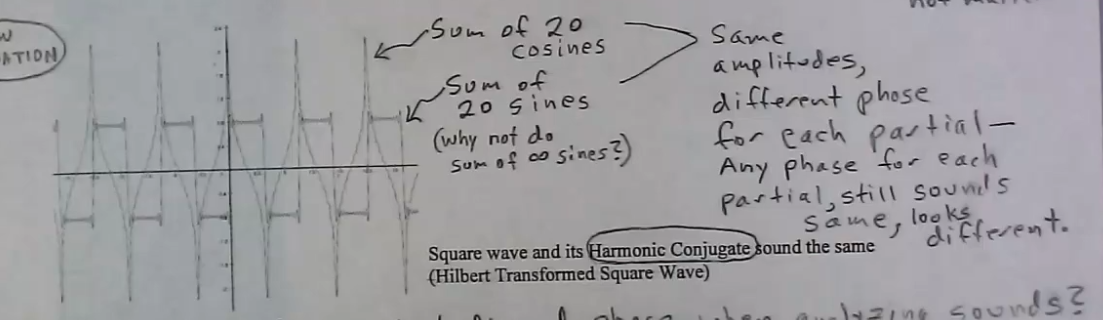 ATION
Sum of 20
cosines
Sum of
20 sines
(why not do
sum of ∞ sines?)
Same
amplitudes,
different phase
for each partial—
Any phase for each
partial, still sounds
same, looks
different.
Square wave and its Harmonic Conjugate sound the same
(Hilbert Transformed Square Wave)
phase when analyzing sounds?